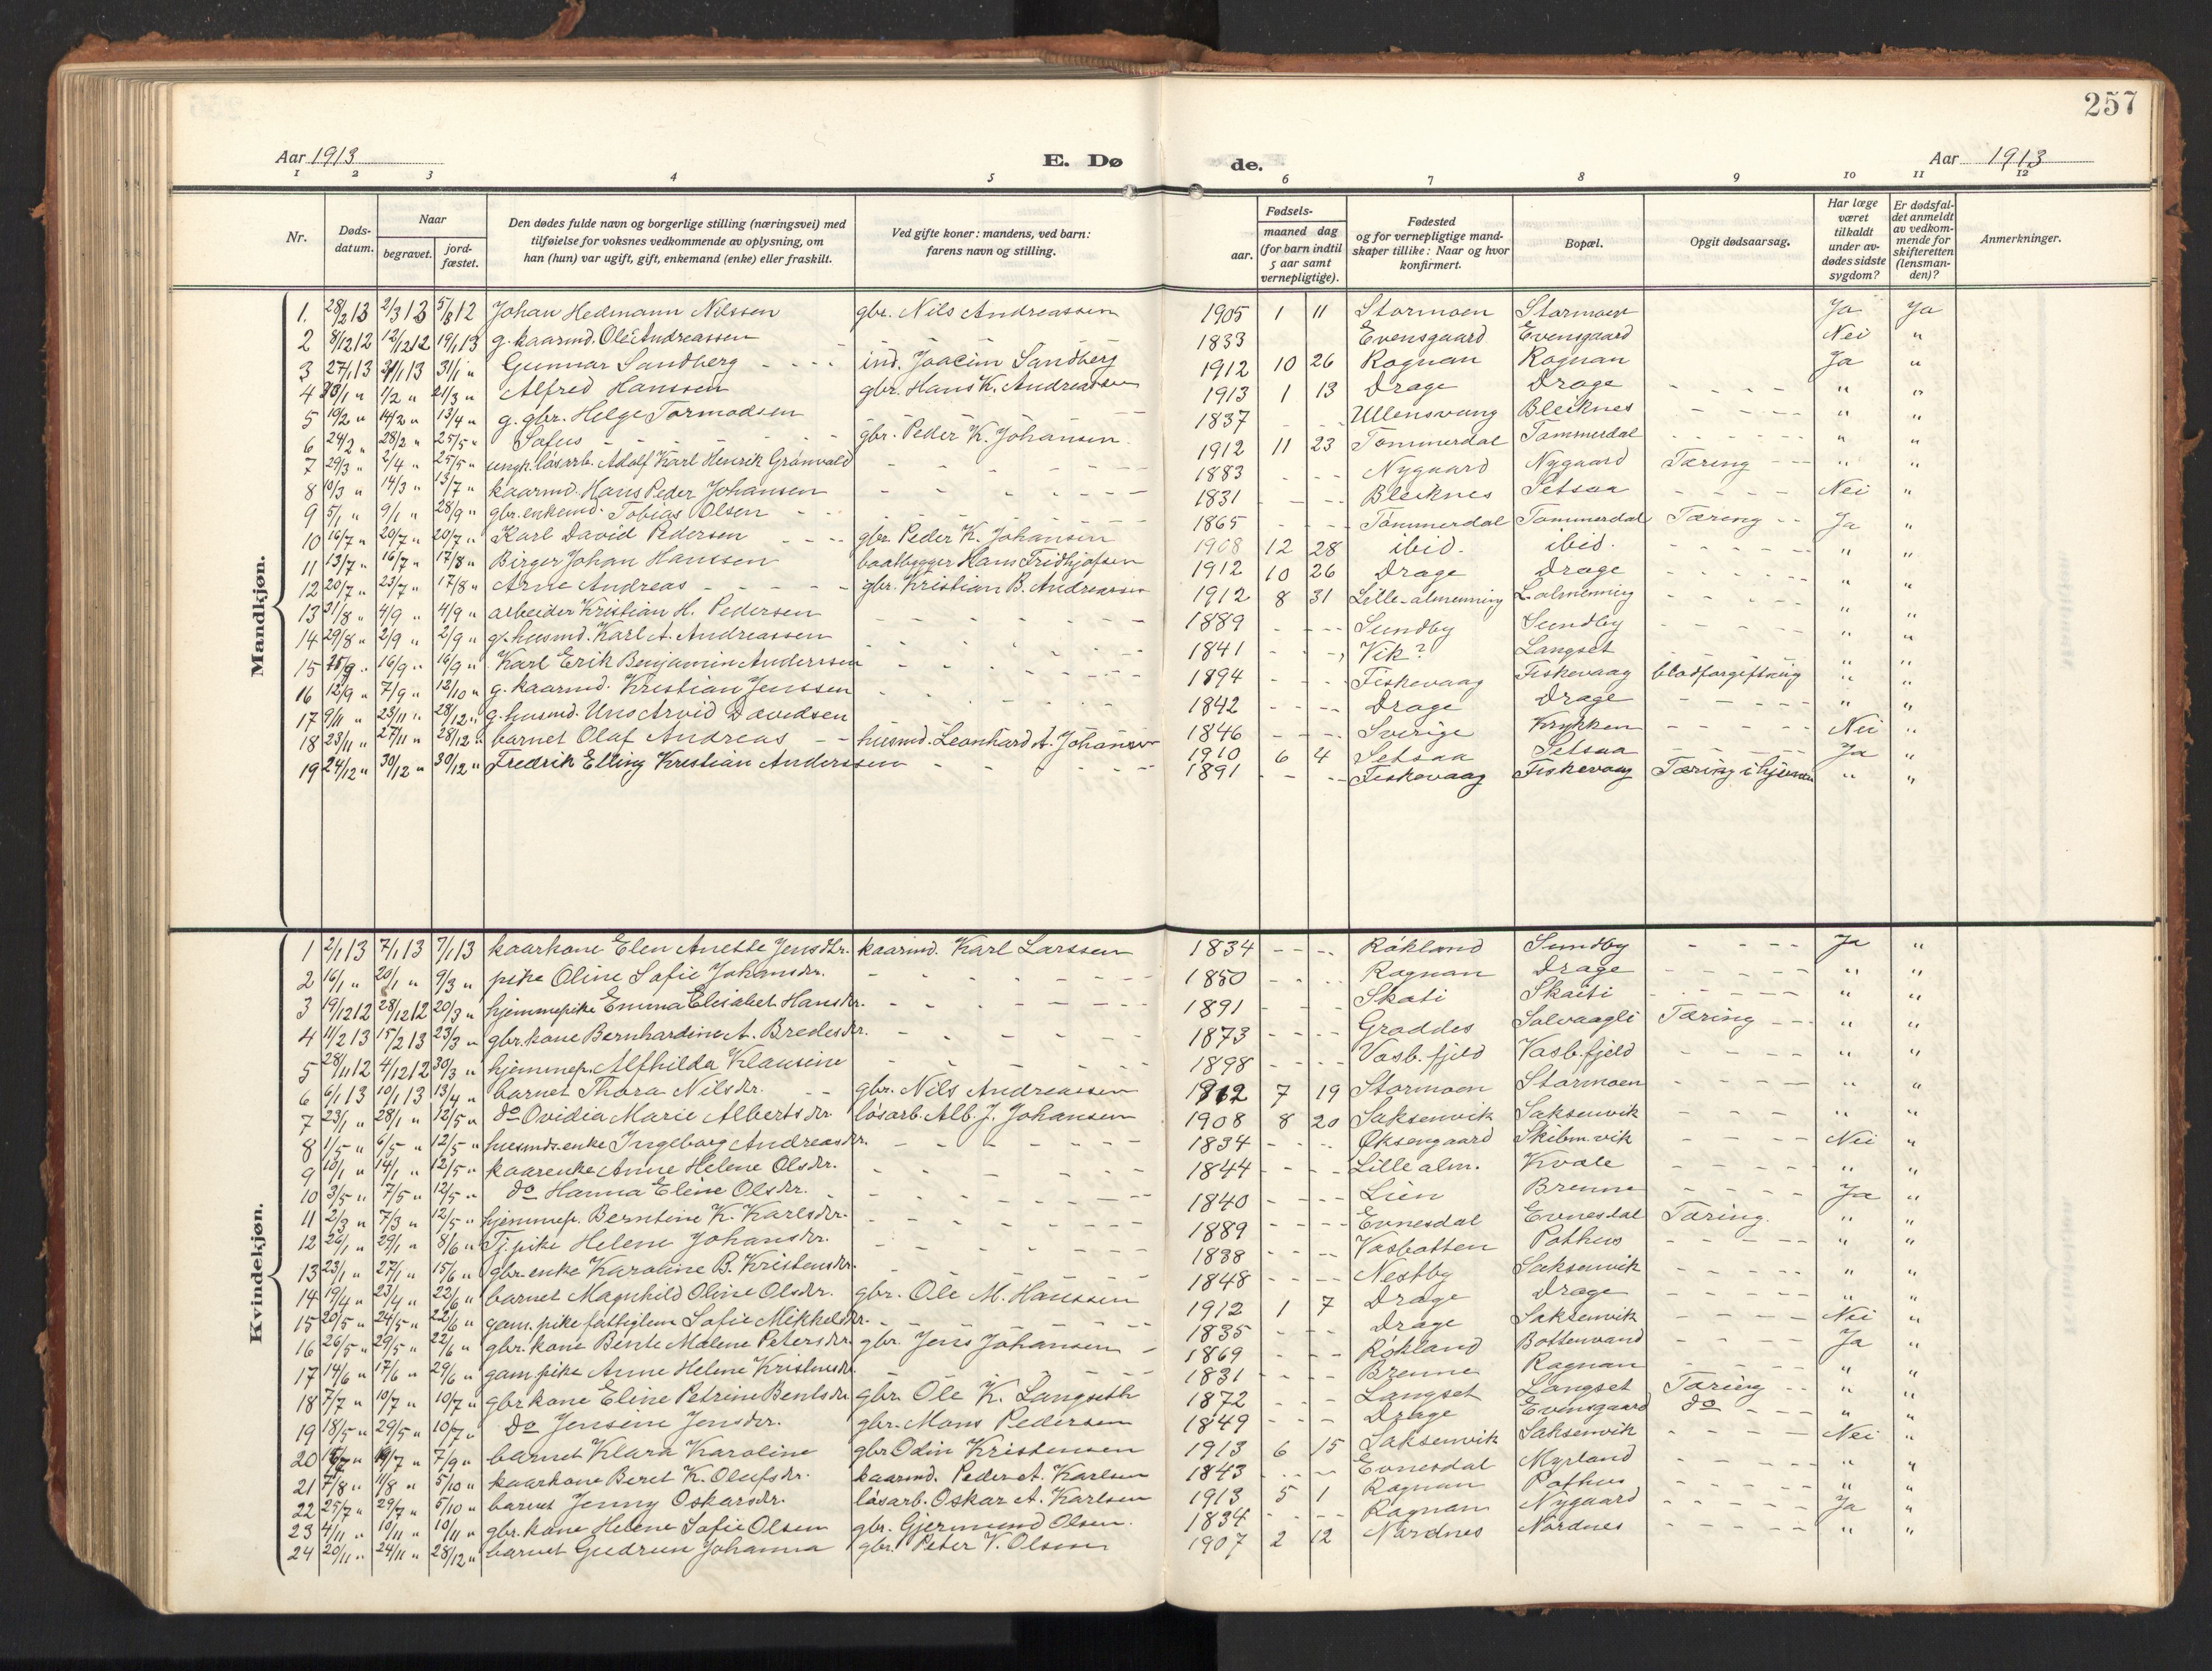 257
Aar 1913 E. Dø de. Aar 1913
1 2 3 4 5 6 7 8 9 10 11 12
Nr. Døds-datum. Naar begravet. jord-fæstet. Den dødes fulde navn og borgerlige stilling (næringsvei) med tilføielse for voksnes vedkommende av oplysning, om han (hun) var ugift, gift, enkemand (enke) eller fraskilt. Ved gifte koner: mandens, ved barn: farens navn og stilling. Fødsels- aar. maaned dag (for barn indtil 5 aar samt vernepligtige). Fødested og for vernepligtige mandskaper tillike: Naar og hvor konfirmert. Bopæl. Opgit dødsaarsag. Har læge været tilkaldt under avdødes sidste sygdom? Er dødsfaldet anmeldt av vedkommende for skifteretten (lensmanden)? Anmerkninger.
Mandkjøn.
1. 28/2 13 2/3 13 5/8 12 Johan Hedmann Nilssen gbr. Nils Andreassen 1905 1 11 Stormoen Stormoen Ja Ja
2 8/12 12 12/12 12 19/1 13 g. kaarmd. Ole Andreassen 1833 Evensgaard Evensgaard Nei "
3 27/1 13 31/1 " Gunnar Sandberg - - - ind. Joacim Sandberg 1912 10 26 Rognan Rognan Ja "
4 1/2 " 21/3 " Alfred Hanssen gbr. Hans K. Andreassen 1913 1 13 Drage Drage - - - - " "
5 10/2 " 14/2 " 13/4 " g. gbr. Helge Tormodsen 1837 - - - Ullensvang Bleiknes - - - - " "
6 24/2 " 28/2 " 25/5 " Sofus - - - gbr. Peder K. Johansen 1912 11 23 Tømmerdal Tømmerdal - - - - " "
7 29/3 " 2/4 " 25/5 " ungk. løsarb. Adolf Karl Henrik Grønvald - - - - 1883 - - - Nygaard Nygaard Tæring - - " "
8 10/3 " 14/3 " 13/7 " kaarmd. Hans Peder Johansen - - - - 1831 - - - Bleiknes Setsaa - - - - Nei "
9 5/1 " 9/1 " 28/9 " gbr. enkemd. Tobias Olsen - - - - 1865 - - - Tømmerdal Tømmerdal Tæring - - Ja "
10 16/7 " 20/7 " 20/7 " Karl David Pedersen - - - gbr. Peder K. Johansen 1908 12 28 ibid. ibid. - - - - " "
11 13/7 " 16/7 " 17/8 " Birger Johan Hanssen baatbygger Hans Fridhjofsen 1912 10 26 Drage Drage - - - - " "
12 20/7 " 23/7 " 17/8 " Arne Andreas - - - gbr. Kristian B. Andreassen 1912 8 31 Lille-almenning L. almenning - - - - " "
13 31/8 " 4/9 " 4/9 " arbeider Kristian H. Pedersen - - - - 1889 - - - Sundby Sundby - - - - " "
14 29/8 " 2/9 " 2/9 " g. husmd. Karl A. Andreassen - - - - 1841 - - - Vik? Langset - - - - " "
15 16/9 " 16/9 " Karl Erik Benjamin Anderssen - - - - 1894 - - - Fiskevaag Fiskevaag blodforgiftning " "
16 12/9 " 7/9 " 12/10 " g. kaarmd. Kristian Jenssen - - - - 1842 - - - Drage Drage - - - - " "
17 9/11 " 23/11 " 28/12 " g. husmd. Uno Arvid Davidsen 1846 - - - Sverige Krykken - - - - Nei "
18 23/11 " 27/11 " 28/12 " barnet Olaf Andreas - - husmd. Leonhard A. Johansen 1910 6 4 Setsaa Setsaa - - - - Ja "
19 24/12 " 30/12 " 30/12 " Fredrik Elling Kristian Anderssen - - - - 1891 - - - Fiskevaag Fiskevaag Tæring i hjernen " "
Kvindekjøn.
1 2/1 13 7/1 13 7/1 13 kaarkone Elen Anette Jensdtr. kaarmd. Karl Larssen 1834 - - - Røkland Sundby - - - - Ja "
2 16/1 " 20/1 " 9/3 " pike Oline Sofie Johansdr. - - - - 1850 - - - Rognan Drage - - - - " "
3 19/12 12 28/12 12 20/3 " hjemmepike Emma Elisabet Hansdr. - - - - 1891 - - - Skati Skaiti - - - - " "
4 11/2 13 15/2 13 23/3 " gbr. kone Bernhardine A. Bredesdr. - - - - 1873 - - - Graddes Solvaagli Tæring - - " "
5 28/11 12 4/12 12 30/3 " hjemmep. Alfhilda Klausine - - - - 1898 - - - Vasb. fjeld Vasb. fjeld - - - - " "
6 6/1 13 10/1 13 13/4 " barnet Thora Nilsdr. - - gbr. Nils Andreassen 1912 7 19 Stormoen Stormoen - - - - " "
7 23/1 " 28/1 " 12/5 " do Ovidia Marie Albertsdr. løsarb. Alb. J. Johansen 1908 8 20 Saksenvik Saksenvik - - - - " "
8 1/5 " 6/5 " 12/5 " husmds. enke Ingeborg Andreasdr. - - - - 1834 - - - Øksengaard Skibm. vik - - - - Nei "
9 10/1 " 14/1 " 12/5 " kaarenke Anne Helene Olsdr. - - - - 1844 - - - Lille alm. Kvale - - - - " "
10 3/5 " 7/5 " 12/5 " do Hanna Eline Olsdr. - - - - 1840 - - - Lien Brenne - - - - Ja "
11 2/3 " 7/3 " 12/5 " hjemmep. Berntine K. Karlsdr. - - - - 1889 - - - Evnesdal Evnesdal Tæring. " "
12 26/1 " 29/1 " 8/6 " Tj. pike Helene Johansdr. - - - - 1838 - - - Vasbotten Pothus - - - - " "
13 23/1 " 27/1 " 15/6 " gbr. enke Karoline B. Kristensdr. - - - - 1848 - - - Nestby Saksenvik - - - - " "
14 19/4 " 23/4 " 22/6 " barnet Magnhild Oline Olsdr. gbr. Ole M. Hanssen 1912 1 7 Drage Drage - - - - " "
15 20/5 " 24/5 " 22/6 " gam. pike fattiglem Sofie Mikkelsdr. - - - - 1835 - - - Drage Saksenvik - - - - Nei "
16 26/5 " 29/5 " 22/6 " gbr. kone Bente Malene Petersdr. gbr. Jens Johansen - 1869 - - - Røkland Bottenvand - - - - Ja "
17 14/6 " 17/6 " 29/6 " gam. pike Anne Helene Kristensdr. - - - - 1831 - - - Brenne Rognan - - - - " "
18 7/7 " 10/7 " 10/7 " gbr kone Eline Petrine Bentsdr. gbr. Ole K. Langseth 1872 - - - Langset Langset Tæring - - " "
19 18/5 " 29/5 " 10/7 " do Jensine Jensdr. gbr. Mons Pedersen 1849 - - - Drage Evensgaard do - - - " "
20 7/9 " barnet Klara Karoline gbr Odin Kristensen 1913 6 15 Saksenvik Saksenvik - - - - Nei "
21 7/8 " 11/8 " 5/10 " kaarkone Beret K. Olufsdr. kaarmd. Peder A. Karlsen 1843 - - - Evnesdal Myrland - - - - " "
22 25/7 " 29/7 " 5/10 " barnet Jenny Oskarsdr. løsarb. Oskar A. Karlsen 1913 5 1 Rognan Pothus - - - - " "
23 4/11 " 10/11 " 10/11 " gbr. kone Helene Sofie Olsen gbr. Gjermund Olsen. 1834 - - - Rognan Nygaard - - - - Ja "
24 20/11 " 24/11 " 28/12 " barnet Gudrun Johanna gbr. Peter V. Olsen 1907 2 12 Nordnes Nordnes - - - - " "